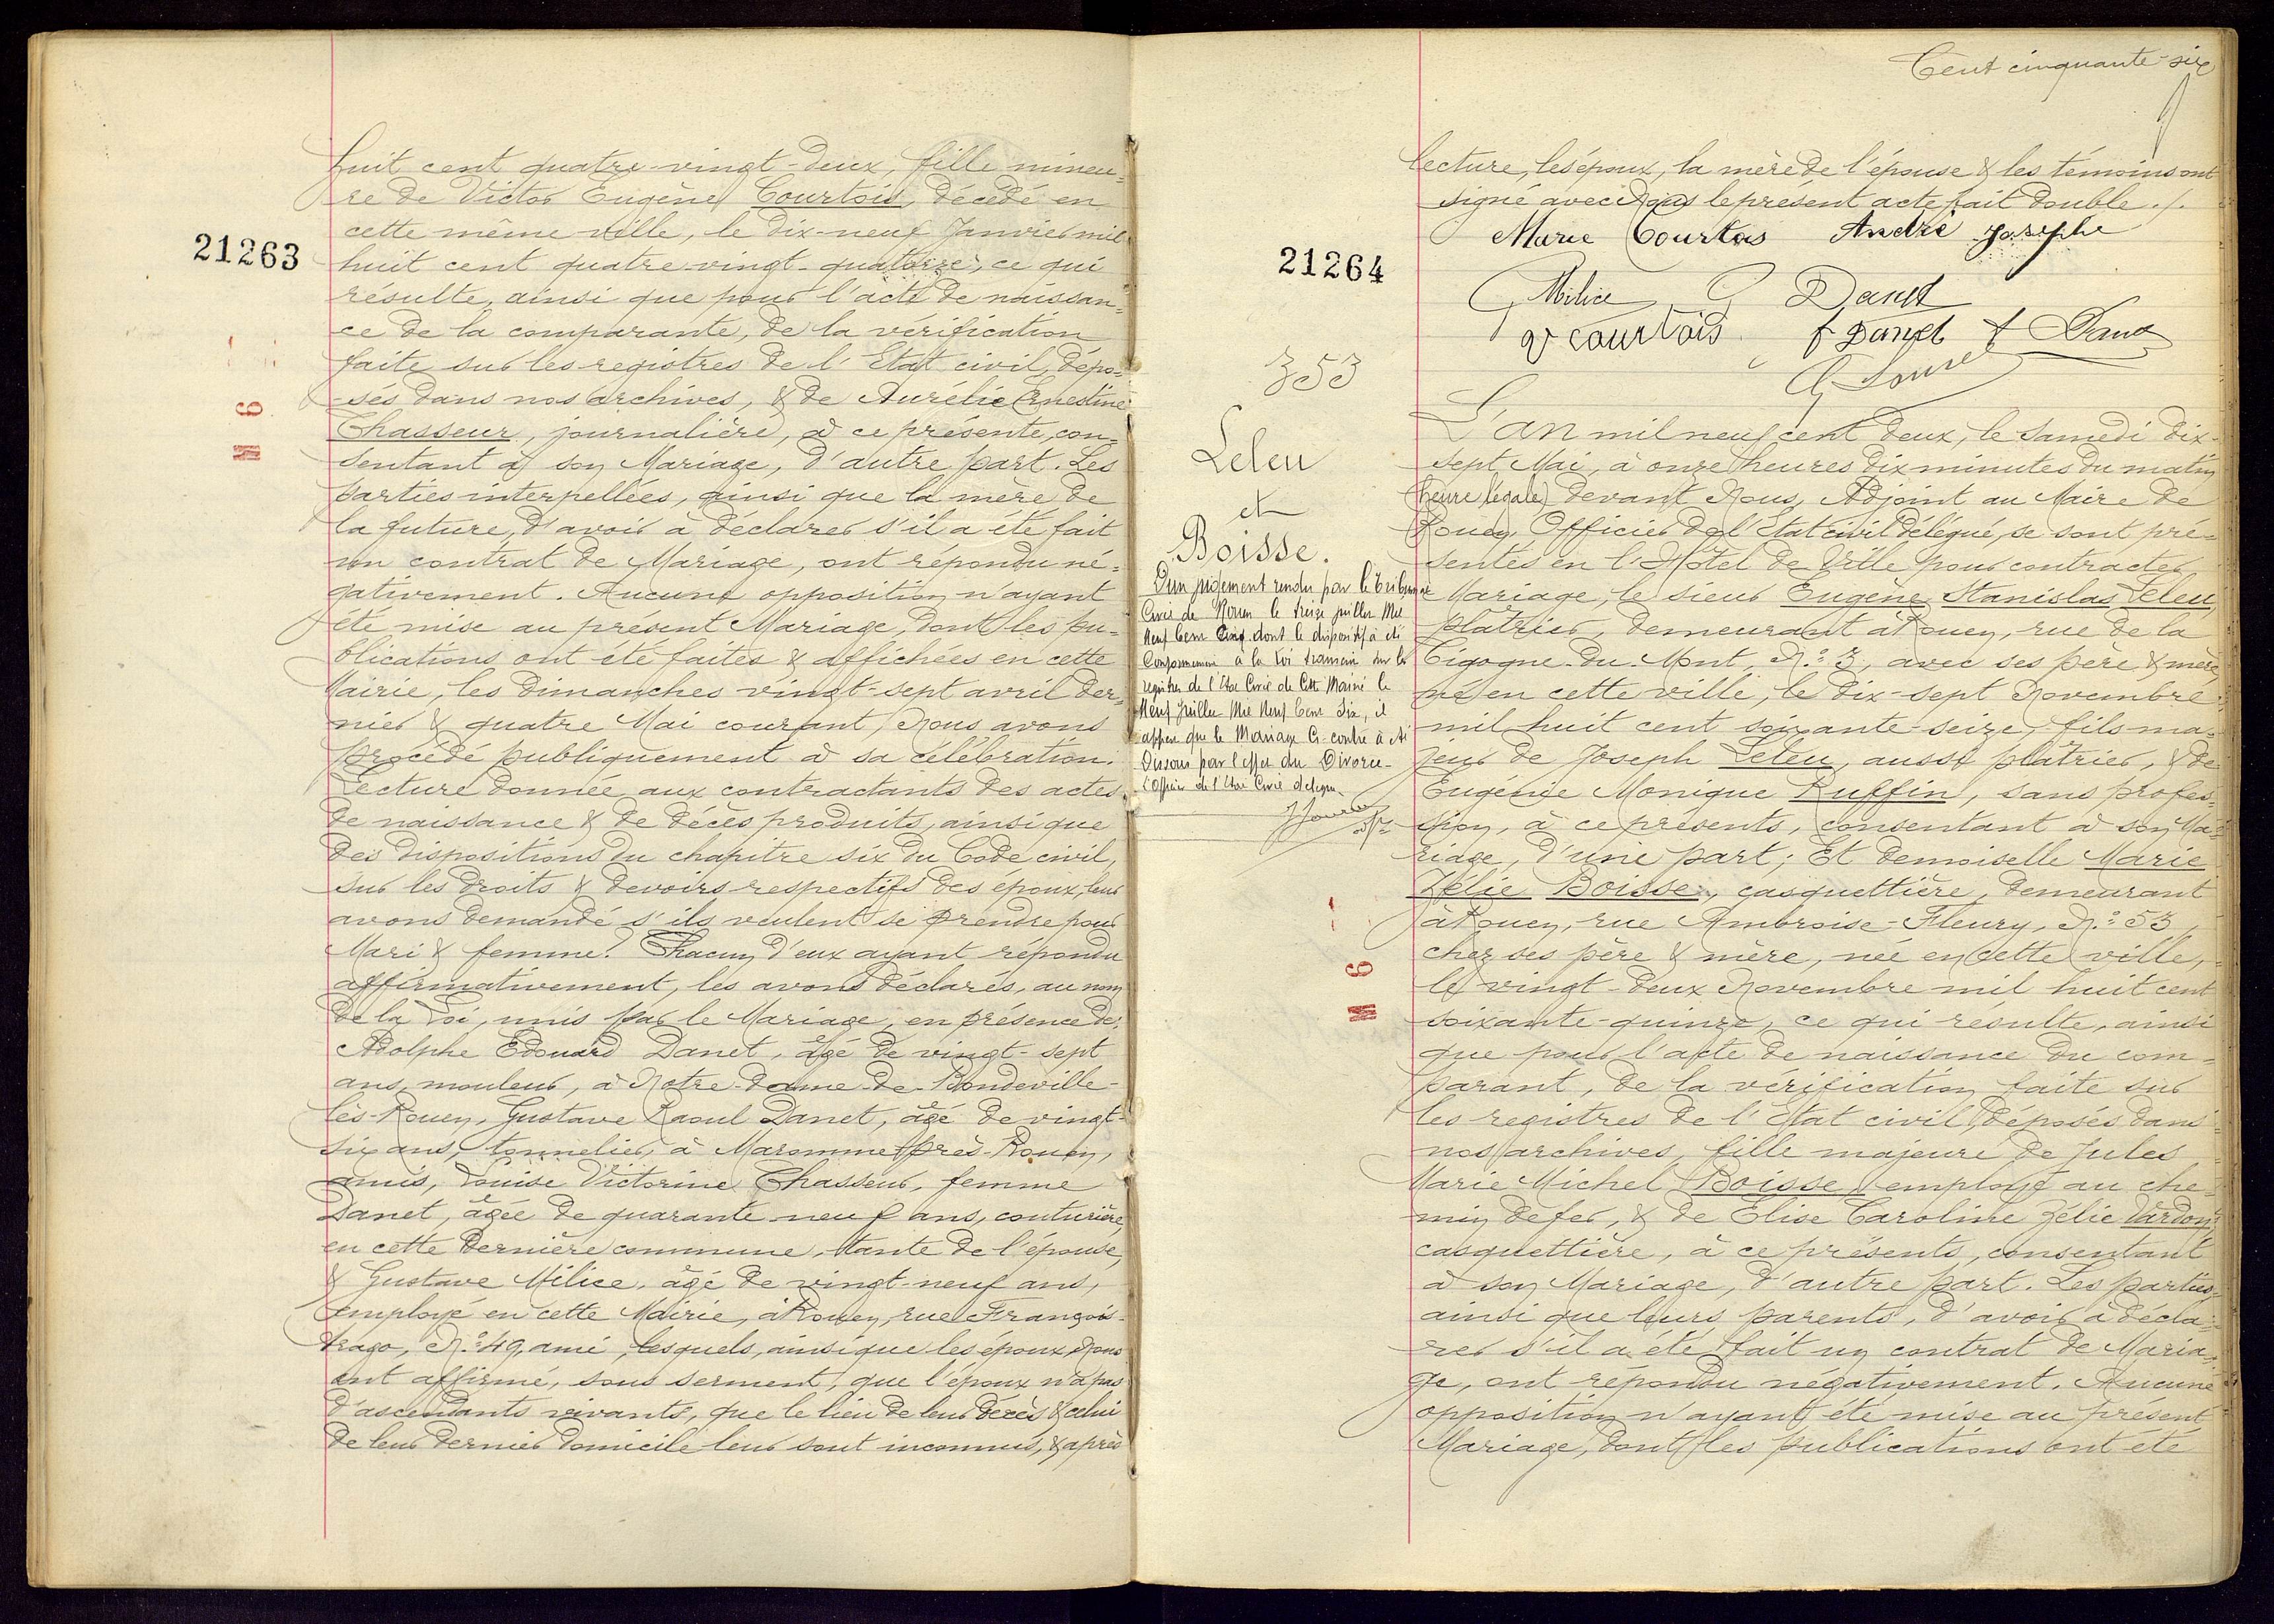 21263
huit cent quatre-vingt-deux, fille mineu-
re de Victor Eugène Courtois, décédé en
cette même ville, le dix-neuf Janvier mil
huit cent quatre-vingt-quatorze, ce qui
résulte, ainsi que pour l'acte de naissan-
ce de la comparante, de la vérification
faite sur les registres de l'Etat civil, dépo-
sés dans nos archives, & de Aurélie Ernestine
Chasseur, journalière, à ce présente, con-
sentant à son Mariage, d'autre part. Les
parties interpellées, ainsi que la mère de
la future, d'avoir à déclarer s'il a été fait
un contrat de Mariage, ont répondu né-
gativement. Aucune opposition n'ayant
été mise au présent Mariage, dont les pu-
blications ont été faites & affichées en cette
Mairie, les dimanches vingt-sept avril der-
nier & quatre Mai courant, Nous avons
procédé publiquement à sa célébration.
Lecture donnée aux contractants des actes
de naissance & de décès produits, ainsi que
des dispositions du chapitre six du Code civil,
sur les droits & devoirs respectifs des époux, leur
avons demandé s'ils veulent se prendre pour
Mari & femme? Chacun d'eux ayant répondu
affirmativement, les avons déclarés, au nom
de la Loi, unis par le Mariage, en présence de:
Adolphe Edouard Danet, âgé de vingt-sept
ans, mouleur, à Notre-Dame-de-Bondeville-
lès-Rouen, Gustave Raoul Danet, âgé de vingt-
six ans, tonnelier, à Maromme-près-Rouen,
amis, Louise Victorine Chasseur, femme
Danet, âgée de quarante neuf ans, couturière,
en cette dernière commune, tante de l'épouse,
& Gustave Milice, âgé de vingt-neuf ans,
employé en cette Mairie, à Rouen, rue François-
Arago, N.° 49, ami, lesquels, ainsi que les époux, Nous
ont affirmé, sous serment, que l'époux n'a pas
d'ascendants vivants, que le lieu de leur décès & celui
de leur dernier domicile leur sont inconnus, & après
M 6
Cent cinquante-six
21264
lecture, les époux, la mère de l'épouse & les témoins ont
signé avec Nous le présent acte fait double ./.
Marie Courtois André Josephe
G Milice Danet
V courtois f Danet Danet
353
Leleu
et
Boisse.
D'un jugement rendu par le Tribunal
Civil de Rouen le treize juillet Mil
Neuf Cent Cinq dont le dispositif a été
Conformément à la Loi transcrit sur les
registres de l'Etat Civil de Cette Mairie le
Neuf Juillet Mil Neuf Cent Six, il
appert que le Mariage Ci-contre a été
Dissous par l'effet du Divorce-
l'Officier de l'Etat Civil délégué.
L'an mil neuf cent deux, le Samedi dix-
sept Mai, à onze heures dix minutes du matin
(heure légale) devant Nous, Adjoint au Maire de
Rouen, Officier de l'Etat civil délégué, se sont pré-
sentés en l'Hôtel de Ville pour contracter
Mariage, le sieur Eugène Stanislas Leleu,
plâtrier, demeurant à Rouen, rue de la
Cigogne-du-Mont, N.° 3, avec ses père & mère,
né en cette ville, le dix-sept Novembre
mil huit cent soixante-seize, fils ma-
jeur de Joseph Leleu, aussi plâtrier, & de
Eugénie Monique Ruffin, sans profes-
sion, à ce présents, consentant à son Ma-
riage, d'une part; Et demoiselle Marie
Zélie Boisse, casquettière, demeurant
à Rouen, rue Ambroise-Fleury, N.° 53,
chez ses père & mère, née en cette ville,
le vingt-deux Novembre mil huit cent
soixante-quinze, ce qui résulte, ainsi
que pour l'acte de naissance du com-
parant, de la vérification faite sur
les registres de l'Etat civil, déposés dans
nos archives, fille majeure de Jules
Marie Michel Boisse, employé au che-
min de fer, & de Elise Caroline Zélie Vardon,
casquettière, à ce présents, consentant
à son Mariage, d'autre part. Les parties,
ainsi que leurs parents, d'avoir à décla-
rer s'il a été fait un contrat de Maria-
ge, ont répondu négativement. Aucune
opposition n'ayant été mise au présent
Mariage, dont les publications ont été
M 6